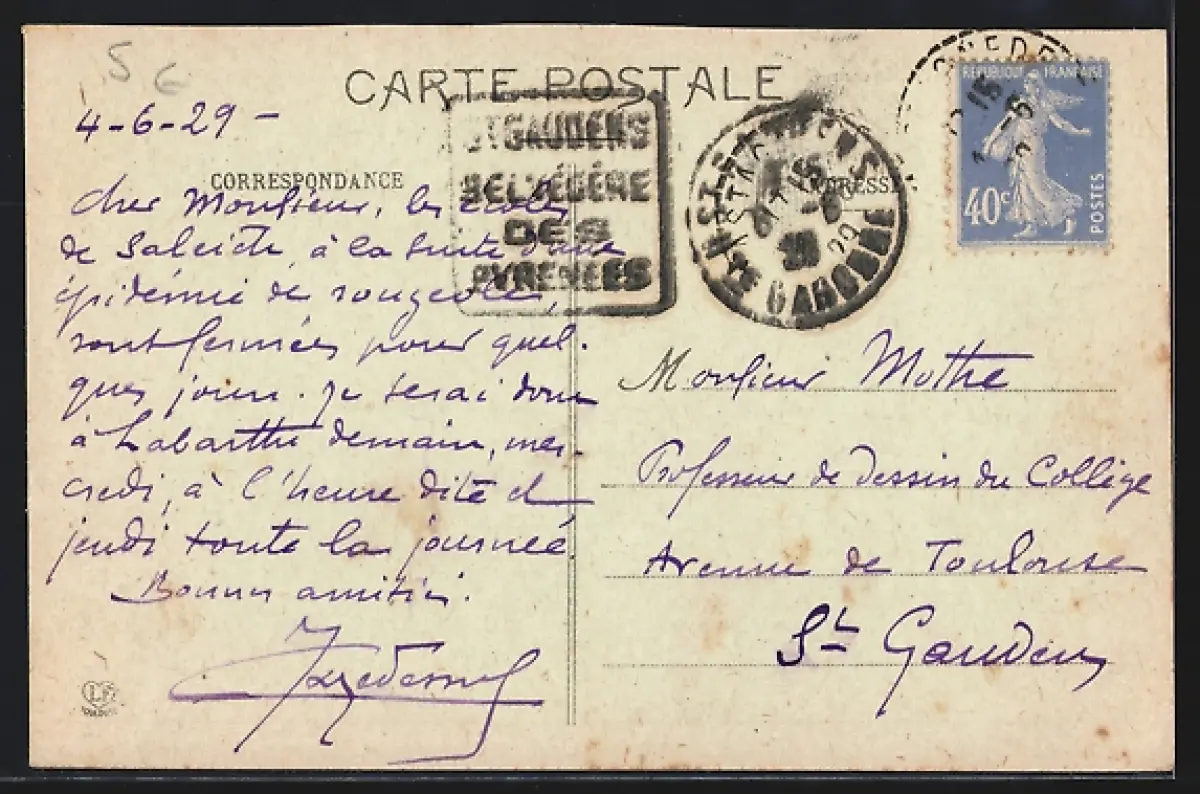 CARTE POSTALE
4-6-29 -
CORRESPONDANCE
ST GAUDENS
BELVÉDÈRE
DES
PYRENÉES
RÉPUBLIQUE FRANÇAISE
40c
POSTES
Hte GARONNE
Cher Monsieur, les écoles
de Saleich, à la suite d'une
épidémie de rougeole,
sont fermées pour quel-
ques jours. Je serai donc
à Labarthe demain, mer-
credi, à l'heure dite et
jeudi toute la journée.
Bonnes amitiés.
LF
Monsieur Mothe
Professeur de Dessin du Collège
Avenue de Toulouse
St Gaudens